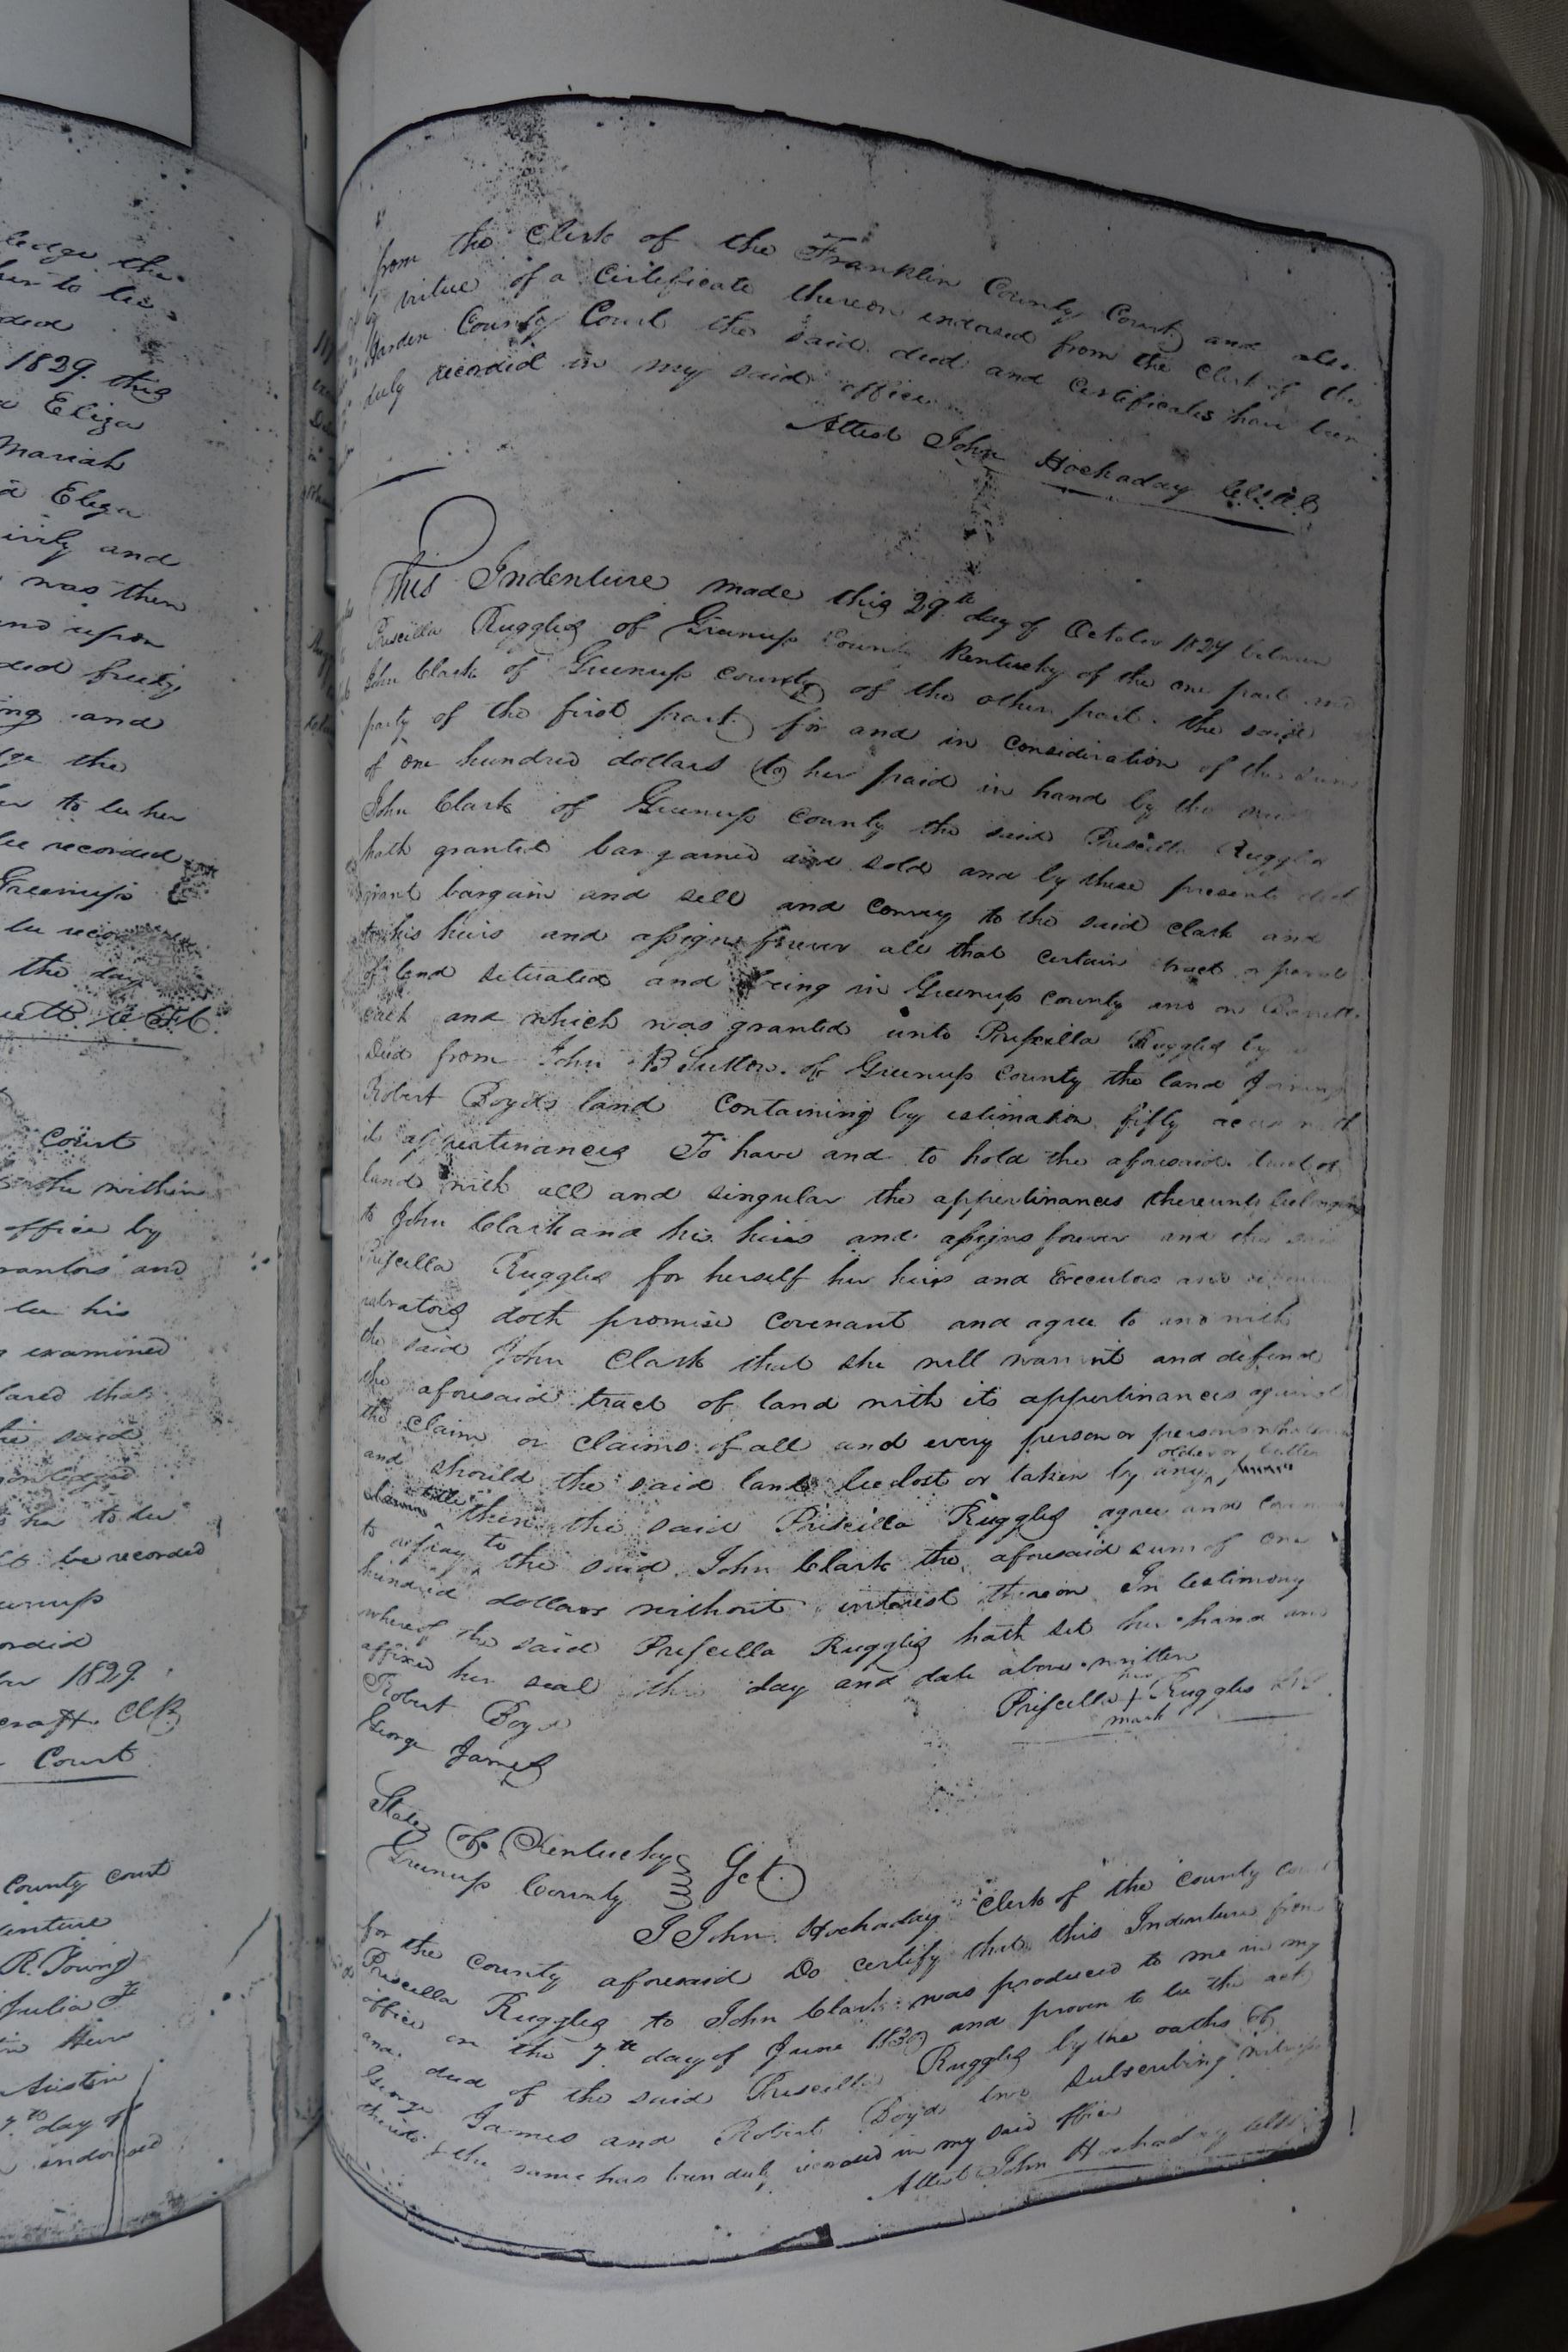 ledge the
her to be
1829. this
Eliza
Mariah
Eliza
and
was then
and upon
freely
and
the
to be her
be recorded
Greenup
be
the day
Court
the within
office by
grantors and
be his
examined
that
the said
to be
be recorded
Greenup
1829.
Court
County Court
R. Young
Julia F
Austin
day of
from the Clerk of the Franklin County Court and also
by virtue of a Certificate thereon indorsed from the Clerk of the
Harden County Court the said deed and Certificates have been
duly recorded in my said office
Attest John Hockaday
This Indenture made this 29th day of October 1829 between
Priscilla Ruggles of Greenup County Kentucky of the one part and
John Clark of Greenup county of the other part. the said
party of the first part for and in consideration of the sum
of one hundred dollars to her paid in hand by the said
John Clark of Greenup County the said Priscilla Ruggles
hath granted bargained and sold and by these presents doth
grant bargain and sell and convey to the said Clark and
to his heirs and assigns forever all that certain tract or parcel
of land situated and being in Greenup county and on
and which was granted unto Priscilla Ruggles by
Deed from John B Sutton of Greenup County the land joining
Robert Boyds land Containing by estimation fifty acres with
its appurtinances To have and to hold the aforesaid tract of
land with all and singular the appertinances thereunto belonging
to John Clark and his heirs and assigns forever and the said
Priscilla Ruggles for herself her heirs and Executors and
doth promise covenant and agree to and with
the said John Clark that she will warrant and defend
the aforesaid tract of land with its appertinances against
the claim or claims of all and every person or persons
and should the said land be lost or taken by any older or better
claim then the said Priscilla Ruggles agree and
to repay to the said John Clark the aforesaid sum of one
hundred dollars without interest thereon In testimony
whereof the said Priscilla Ruggles hath set her hand and
affixed her seal the day and date above written
Robert Boyd
Priscilla her + mark Ruggles
George James
State of Kentucky
Greenup County Sct.
I John Hockaday Clerk of the County Court
for the County aforesaid Do certify that this Indenture from
Priscilla Ruggles to John Clark was produced to me in my
office on the 7th day of June 1830 and proven to be the act
and deed of the said Priscilla Ruggles by the oaths of
George James and Robert Boyd two subscribing witnesses
thereto & the same has been duly recorded in my said office
Attest John Hockaday